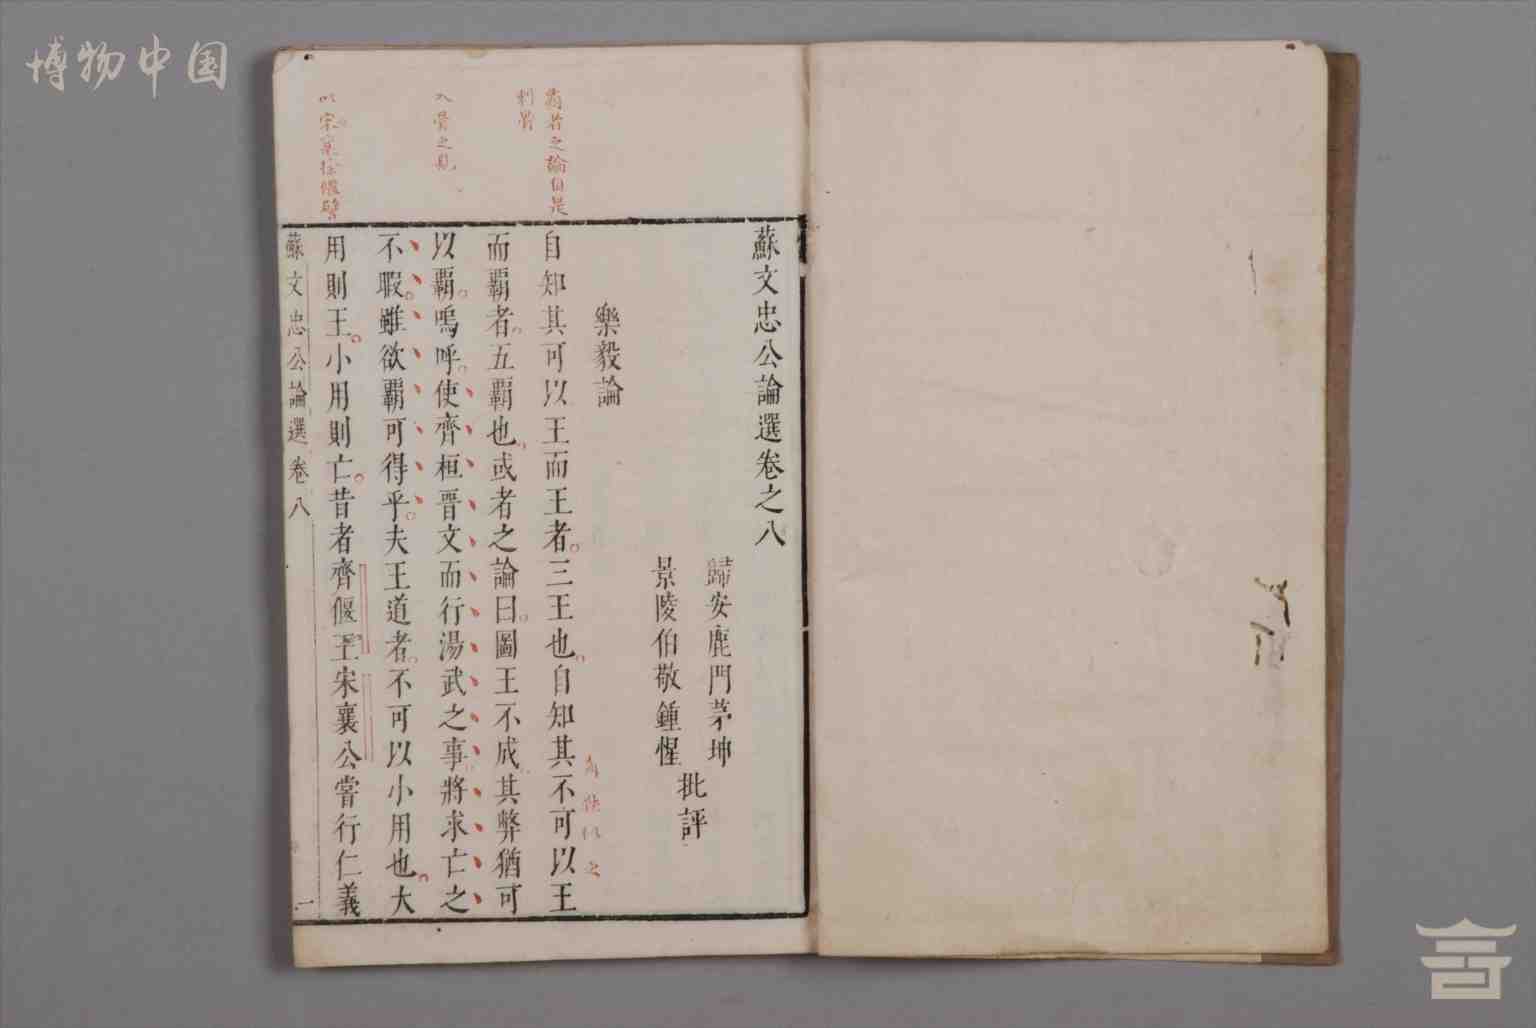 博物中国
覇者之論自是
刺骨
入骨之見
以宋襄徐偃譬
蘇文忠公論選卷之八
歸安鹿門茅坤
景陵伯敬鍾惺
批評
樂毅論
自知其可以王而王者。三王也。自知其不可以王
而覇者。五覇也。或者之論曰。圖王不成。其弊猶可
以覇。嗚呼。使齊桓晉文而行湯武之事。將求亡之
不暇。雖欲覇可得乎。夫王道者。不可以小用也。大
用則王。小用則亡。昔者齊偃王宋襄公嘗行仁義
蘇文忠公論選 卷八 一